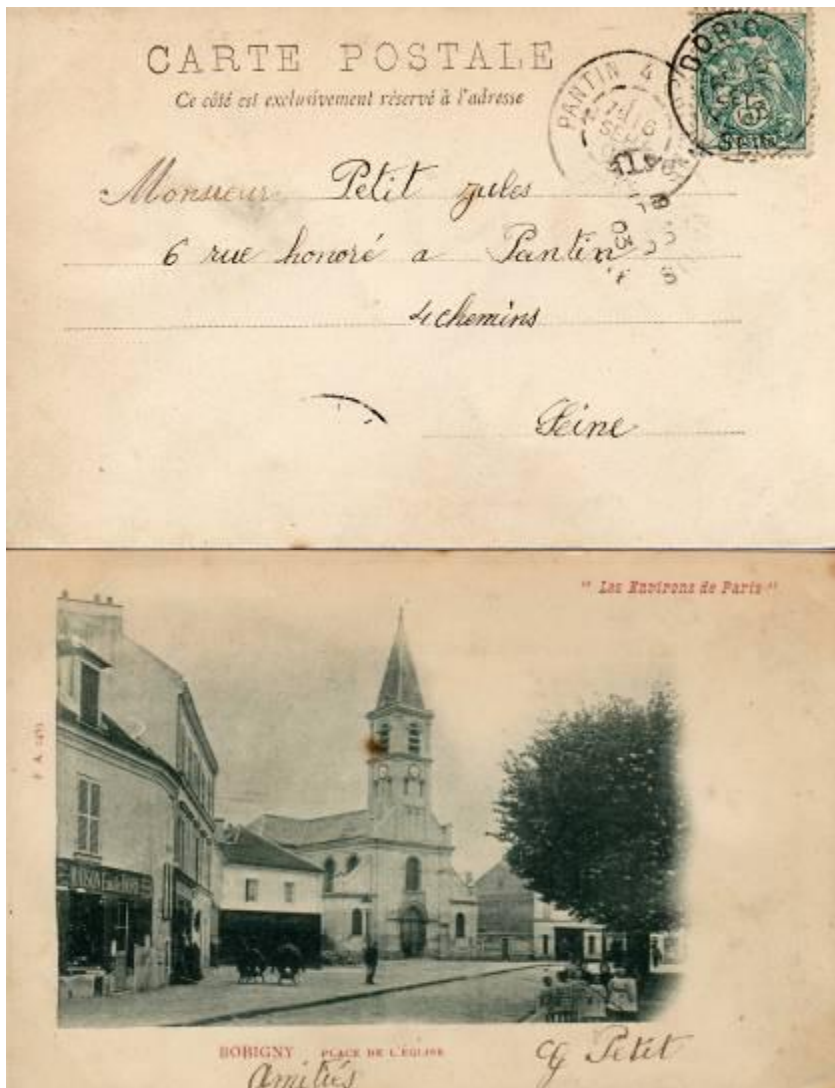 CARTE POSTALE
Ce côté est exclusivement réservé à l'adresse
PANTIN 4
SEPT
Monsieur Petit Jules
6 rue honoré a Pantin
4 chemins
Seine
" Les Environs de Paris "
MAISON
BOBIGNY PLACE DE L'ÉGLISE
Amitiés
Petit